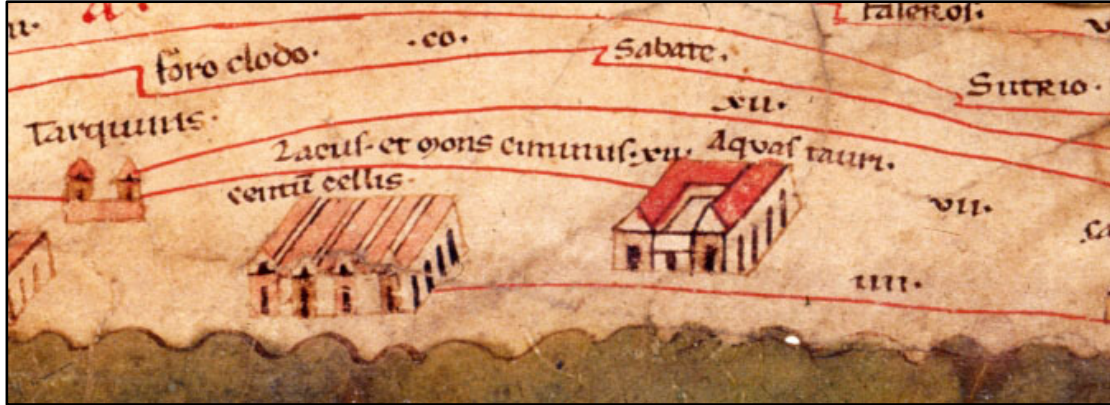 taleros·
foro clodo· ·co· Sabate·
Sutrio·
Tarquinis· xii·
Lacus· et mons ciminus· xii· Aquas tauri·
centū cellis· vii·
iiii·